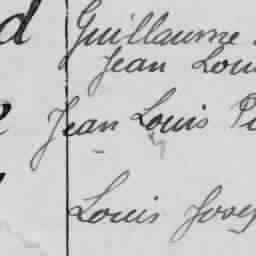 d Guillaume
Jean Loui
e Jean Louis Pi
Louis Josep